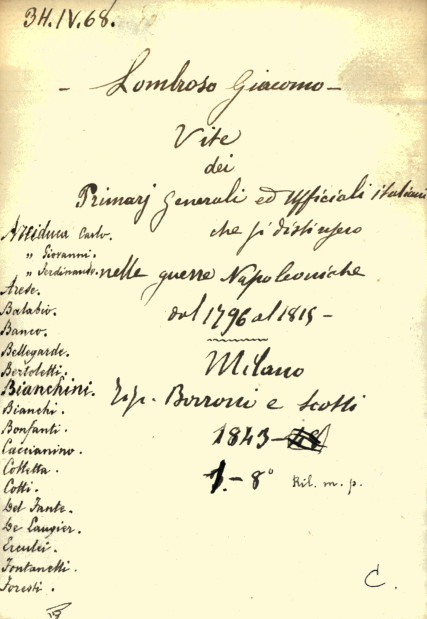 34.IV.68.
- Lombroso Giacomo -
Vite
dei
Primarj Generali ed Ufficiali italiani
che si distinsero
nelle guerre Napoleoniche
dal 1796 al 1815 -
Milano
Tip. Borroni e Scotti
1843-48
1. - 8° Ril. m. p.
C.
Arciduca Carlo.
" Giovanni.
" Ferdinando.
Arese.
Balabio.
Banco.
Bellegarde.
Bertoletti.
Bianchini.
Bianchi.
Bonfanti.
Caccianino.
Colletta.
Cotti.
Del Fante.
De Laugier.
Erculei.
Fontanelli.
Foresti.